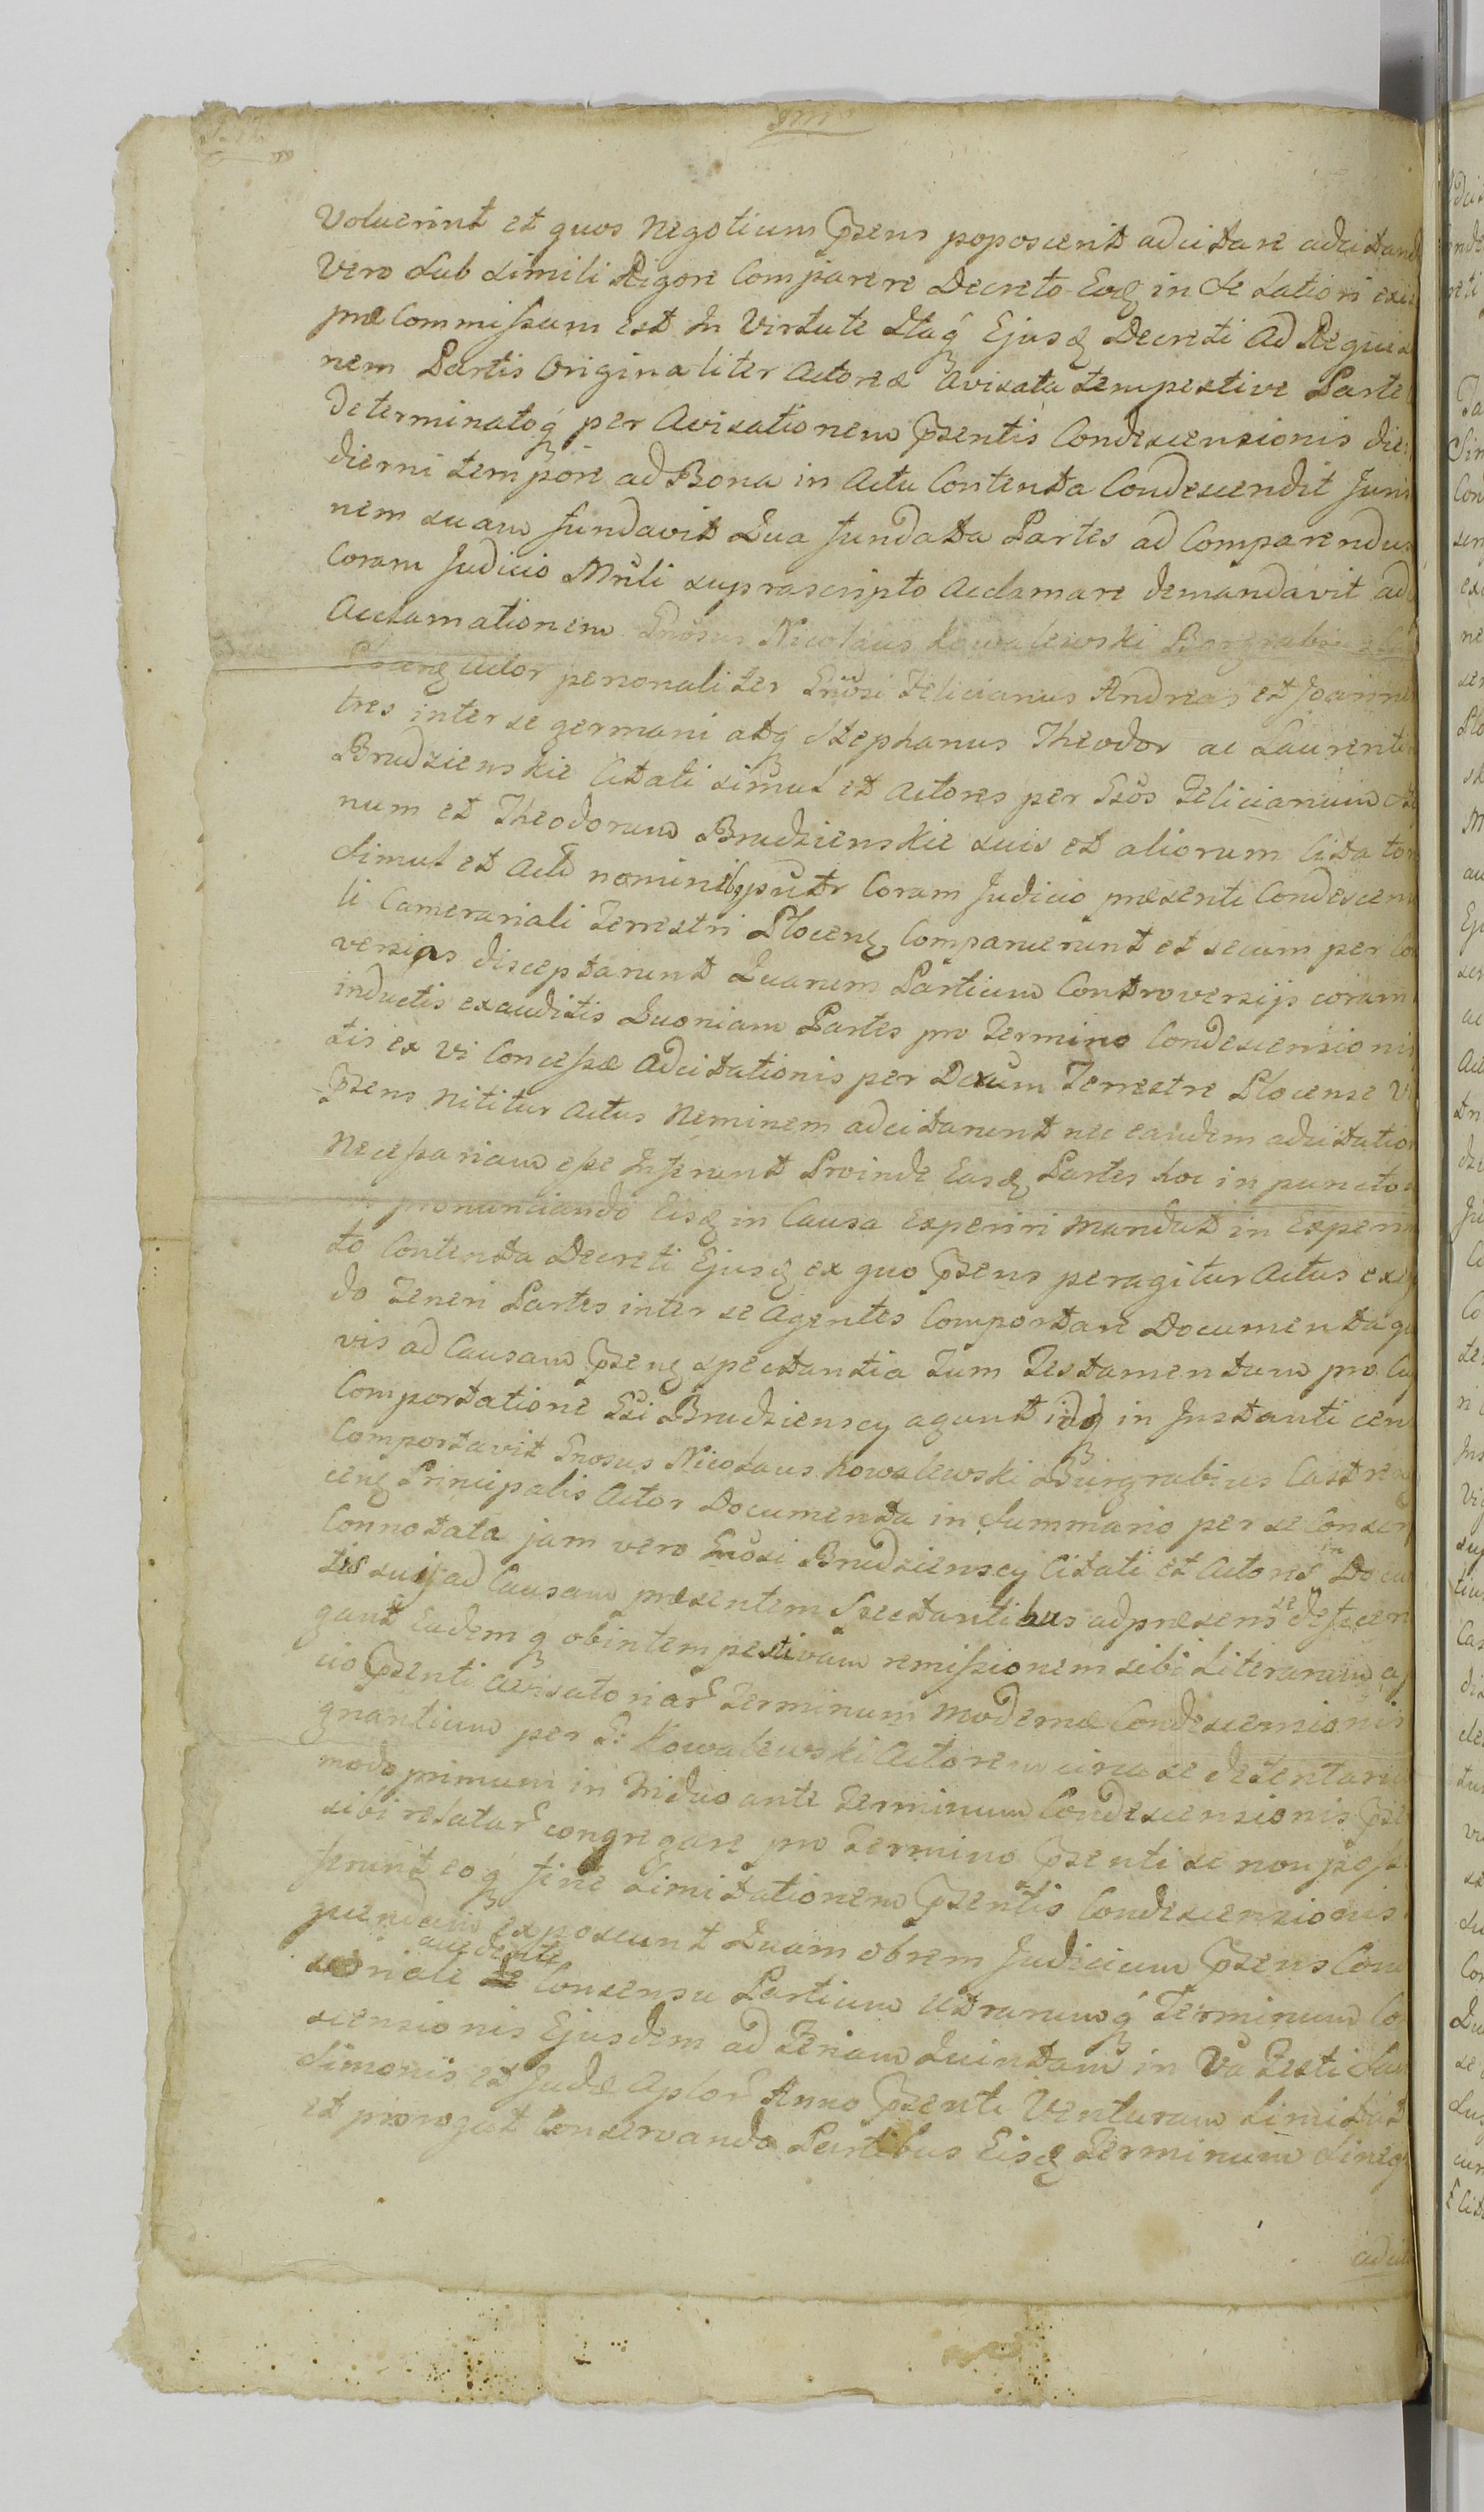 Voluerint et quos Negotium Psens poposcerit adcitare adcitand
Vero Sub Simili Rigore Comparere Decreto Eoq in Se Latiori
præ Commissum Est In Virtute Itaq Ejusq Decreti Ad Requi
nem Partis Originaliter Actoreæ Avisata tempestive Parte
Determinatoq per Avisationem Psentis Condescensionis die
dierni tempore ad Bona in Actu Contenta Condescendit Juri
nem suam fundavit Qua fundata Partes ad Comparendu
Coram Judicio Mnli suprascripto Acclamare demandavit ad
Acclamationem Gnosus Nicolaus Kowalewski Burgrabius
Actor personaliter Gnosi Felicianus Andreas et Joanne
tres inter se germani atq Stephanus Theodor ac Laurenti
Brudzienskie Citati simul et Actores per Gsos Felicianum
num et Theodorum Brudzienskie suis et aliorum Citator
Simul et Act nominibs putr Coram Judicio præsenti Condescen
li Camerariali Terrestri Plocenq Comparuerunt et secum per Co
versias disceptarunt Quarum Partium Controversijs coram
inductis exauditis Quoniam Partes pro Termino Condescensionis
tis ex Vi Concessæ Adcitationis per Dctum Terrestre Plocense
Psens Nititur Actus Neminem adcitarunt nec eandem adcitation
Necessariam esse Inferunt Proinde Easq Partes hoc in puncto
pronunciando Eisq in Causa Experiri Mandat in Experi
to Contenta Decreti Ejusq ex quo Psens peragitur Actus
do Teneri Partes inter se Agentes Comportare Documenta qu
vis ad Causam Psenq spectantia Tum Testamentum pro Cu
Comportatione Gsi Brudzienscy agunt idq in Instanti cen
Comportavit Gnosus Nicolaus Kowalewski Burgrabius Castren
cenq Principalis Actor Documenta in Summario per se Conscr
Connotata jam vero Gnosi Brudzienscy Citati et Actores in Docu
tis suis ad Causam præsentem Spectantibus ad præsens se
gant Eademq ob intempestivam remissionem sibi Literarum
cio Psenti Avisatoriar Terminum modernæ Condescensionis
gnantium per G: Kowalewski Actorem circa se detentar
modo primum in Triduo ante Terminum Condescensionis Pse
sibi relatar congregare pro Termino Psenti se non poss
ferunt eoq fine Limitationem Psentis Condescensionis
quendam exposcunt Quam obrem Judicium Psens Con
accedente
Consensu Partium Utrarumq Terminum Co
scensionis Ejusdem ad Feriam Quintam in Va Festi San
Simonis et Judæ Aplor Anno Psenti Venturam Limitat
et prorogat Conservando Partibus Eisq Terminum Sine